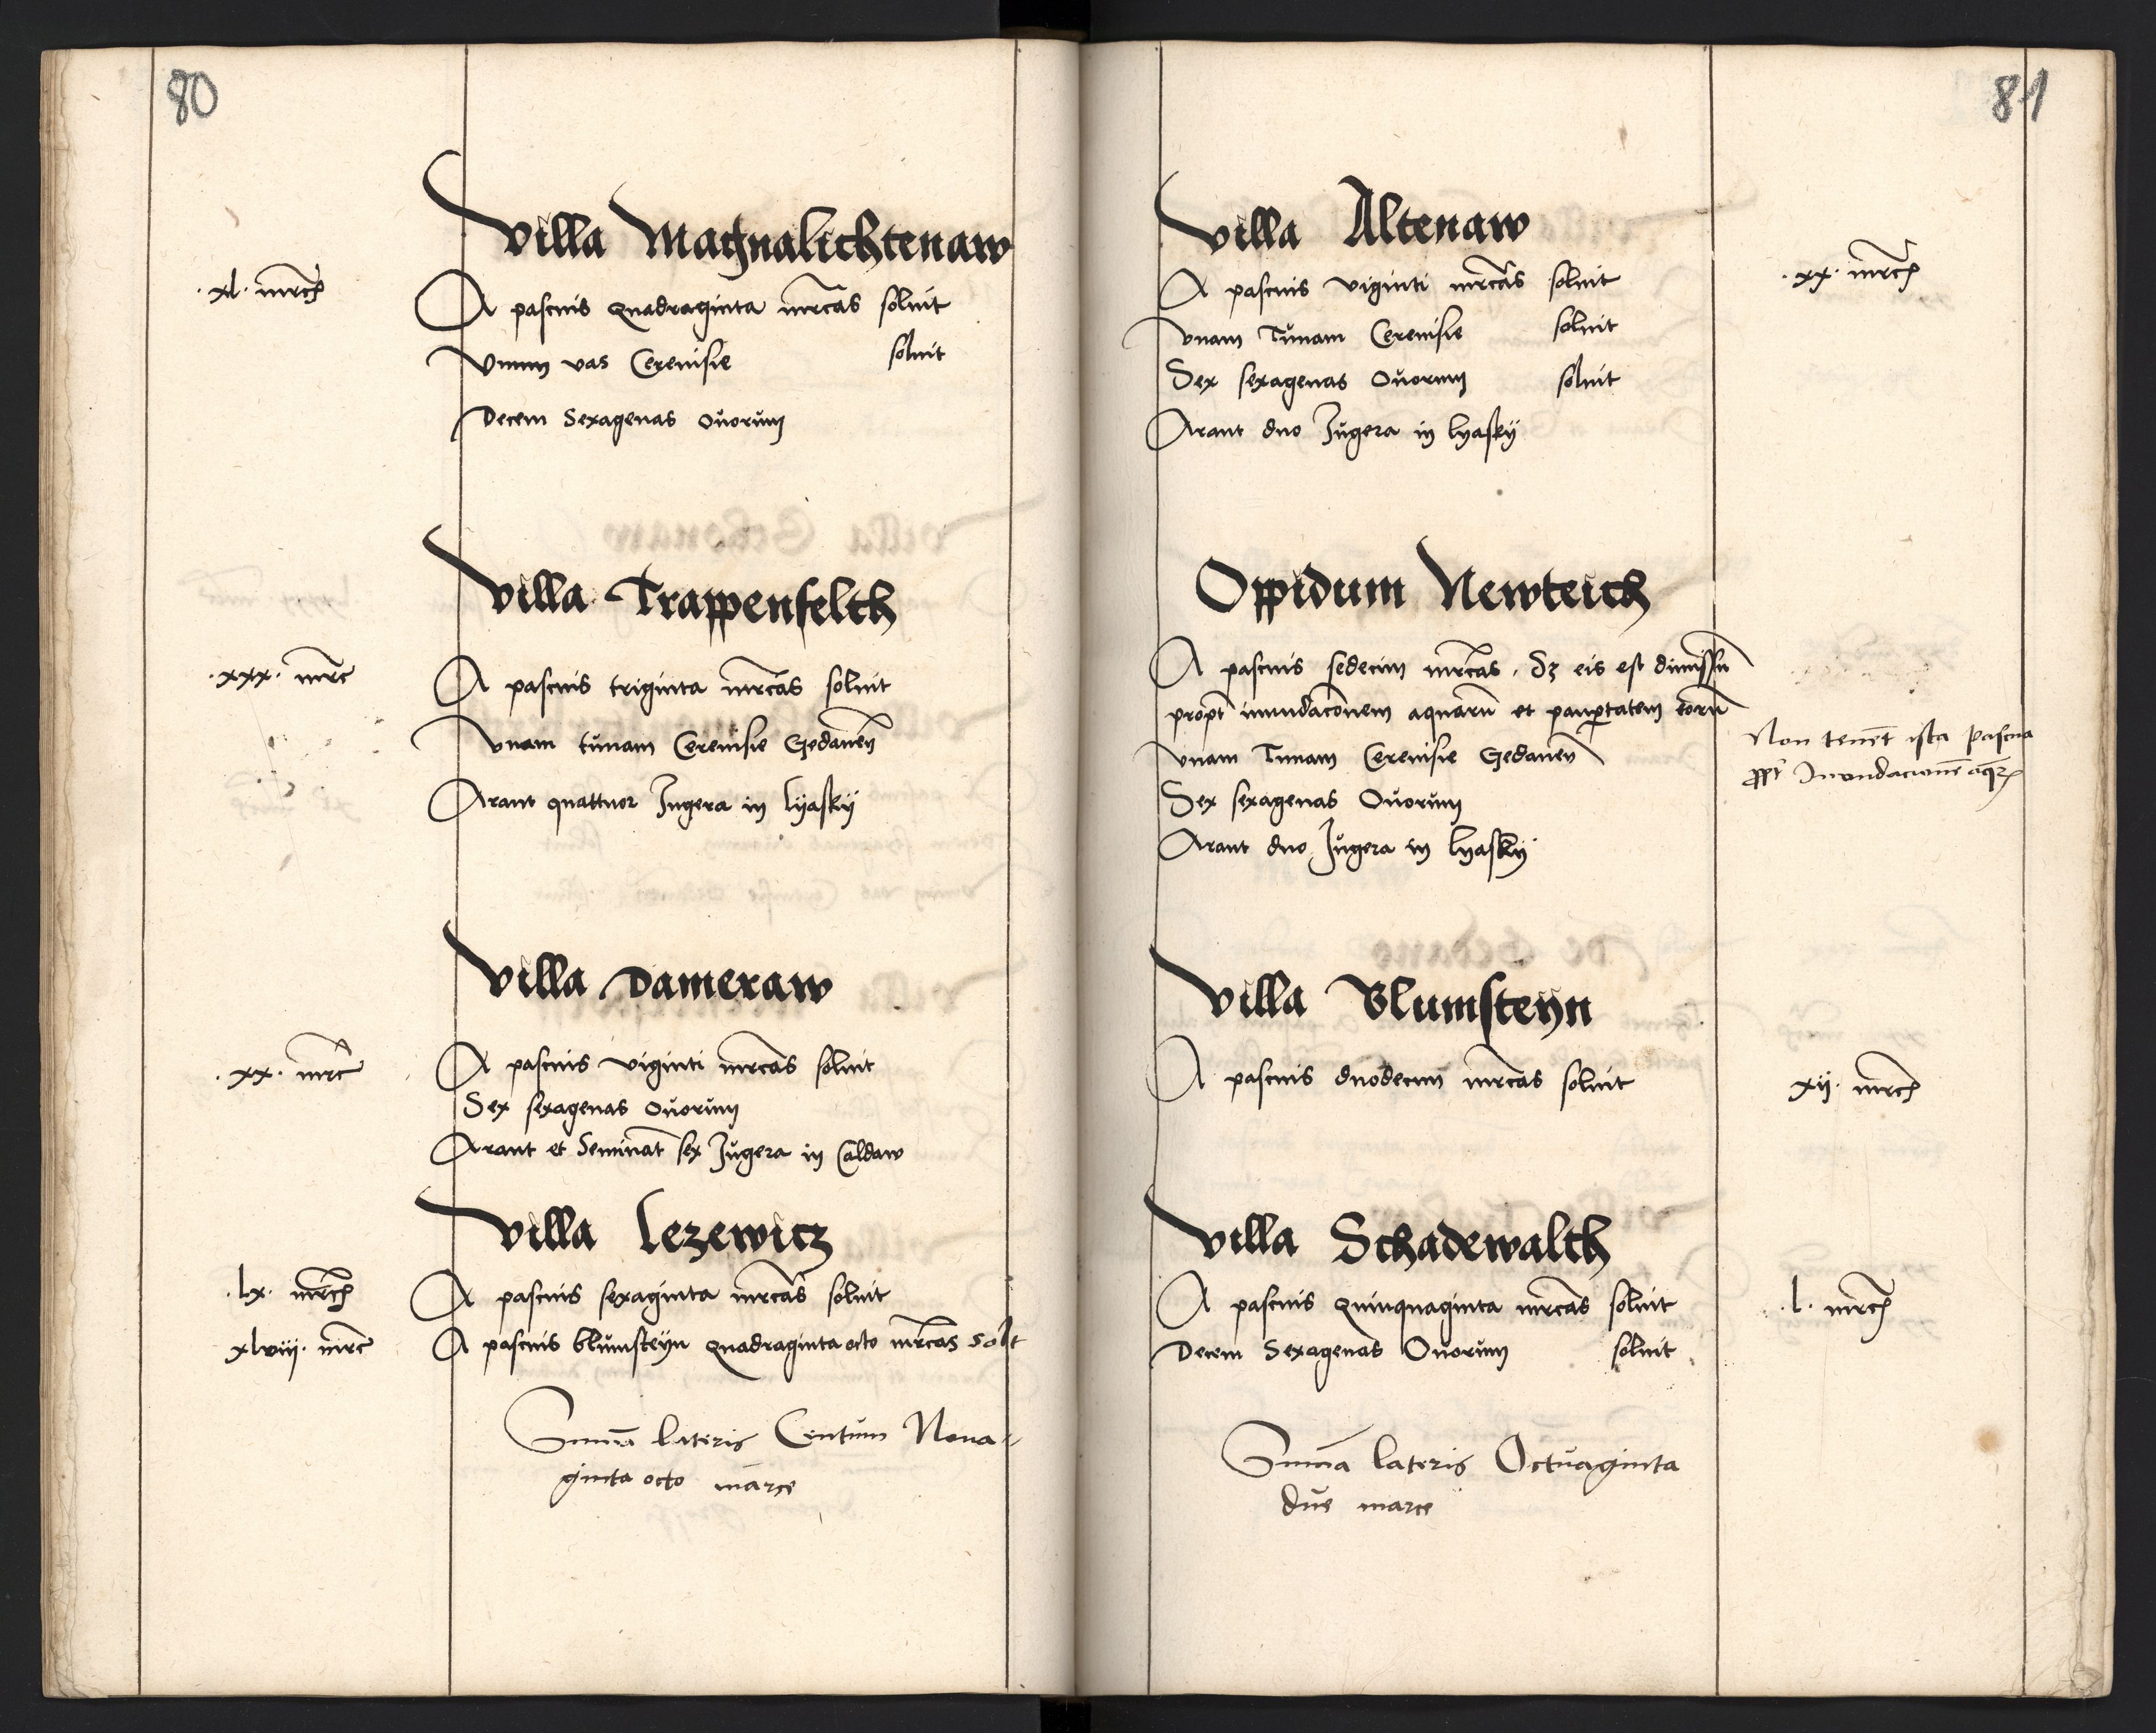 80
villa Magnalichtenaw
.xl. mrc
A pascuis quadraginta mrcas soluit
Vnum vas Cereuisie soluit
Decem Sexagenas ouorum
villa Trappenfelth
.xxx. mrc
A pascuis triginta mrcas soluit
vnam tunam Cereuisie Gedanen
Arant quattuor Jugera in lyasky
villa Dameraw
.xx. mrc
A pascuis viginti mrcas soluit
Sex sexagenas ouorum
Arant et Seminat sex Jugera in Caldaw
villa Lezewicz
.lx. mrc
A pascuis sexaginta mrcas soluit
xlviii. mrc
A pascuis blumsteyn quadraginta octo mrcas solt
Suma lateris Centum Nona-
ginta octo marce
81
villa Altenaw
A pascuis viginti mrcas soluit
.xx. mrc
vnam Tunam Cereuisie soluit
Sex sexagenas Ouorum soluit
Arant duo Jugera in lyasky
Oppidum Newteich
A pascuis sedecim mrcas. Sz eis est dimissu
propt inundaconem aquaru et paupertatem eoru
Non tenet ista pascua
ppt Inundacione aqr
vnam Tunam Cereuisie Gedanen
Sex sexagenas Ouorum
Arant duo Jugera in lyasky
villa Blumsteyn
A pascuis duodecim mrcas soluit
xij. mrc
villa Schadewalth
A pascuis quinquaginta mrcas soluit
.l. mrc
Decem Sexagenas Ouorum soluit
Suma lateris Octuaginta
due marce